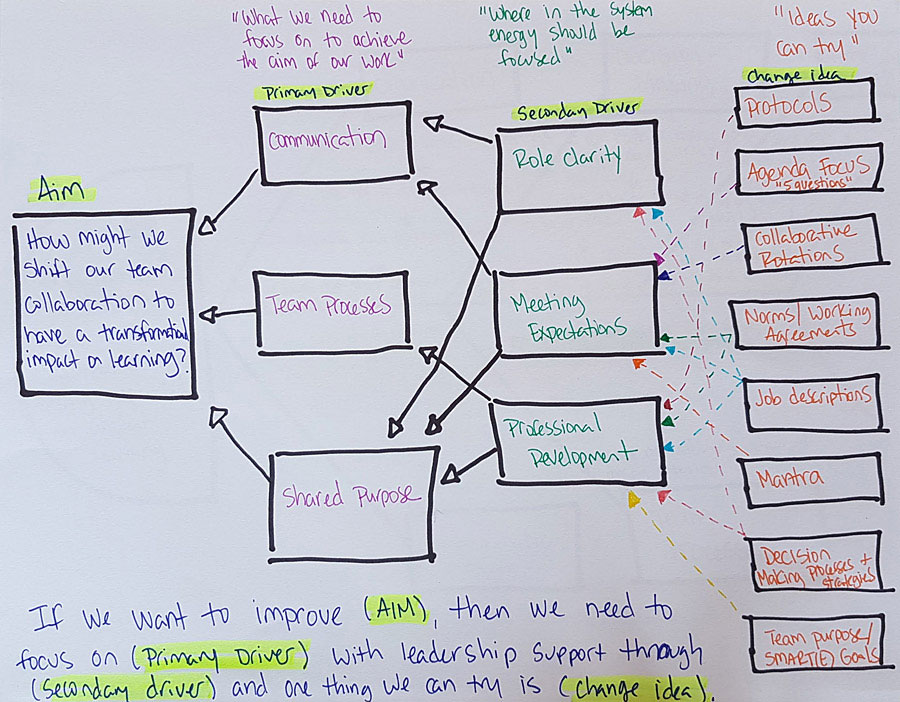 "What we need to
focus on to achieve
the aim of our work"
"Where in the system
energy should be
focused"
"Ideas you
can try"
Primary Driver
Secondary Driver
Change idea
Aim
How might we
shift our team
collaboration to
have a transformational
impact on learning?
Communication
Team Processes
Shared Purpose
Role clarity
Meeting
Expectations
Professional
Development
Protocols
Agenda Focus
"5 questions"
Collaborative
Rotations
Norms/Working
Agreements
Job descriptions
Mantra
Decision
Making Processes +
strategies
Team purpose/
SMART(E) Goals
If we want to improve (AIM), then we need to
focus on (Primary Driver) with leadership support through
(Secondary driver) and one thing we can try is (change idea).